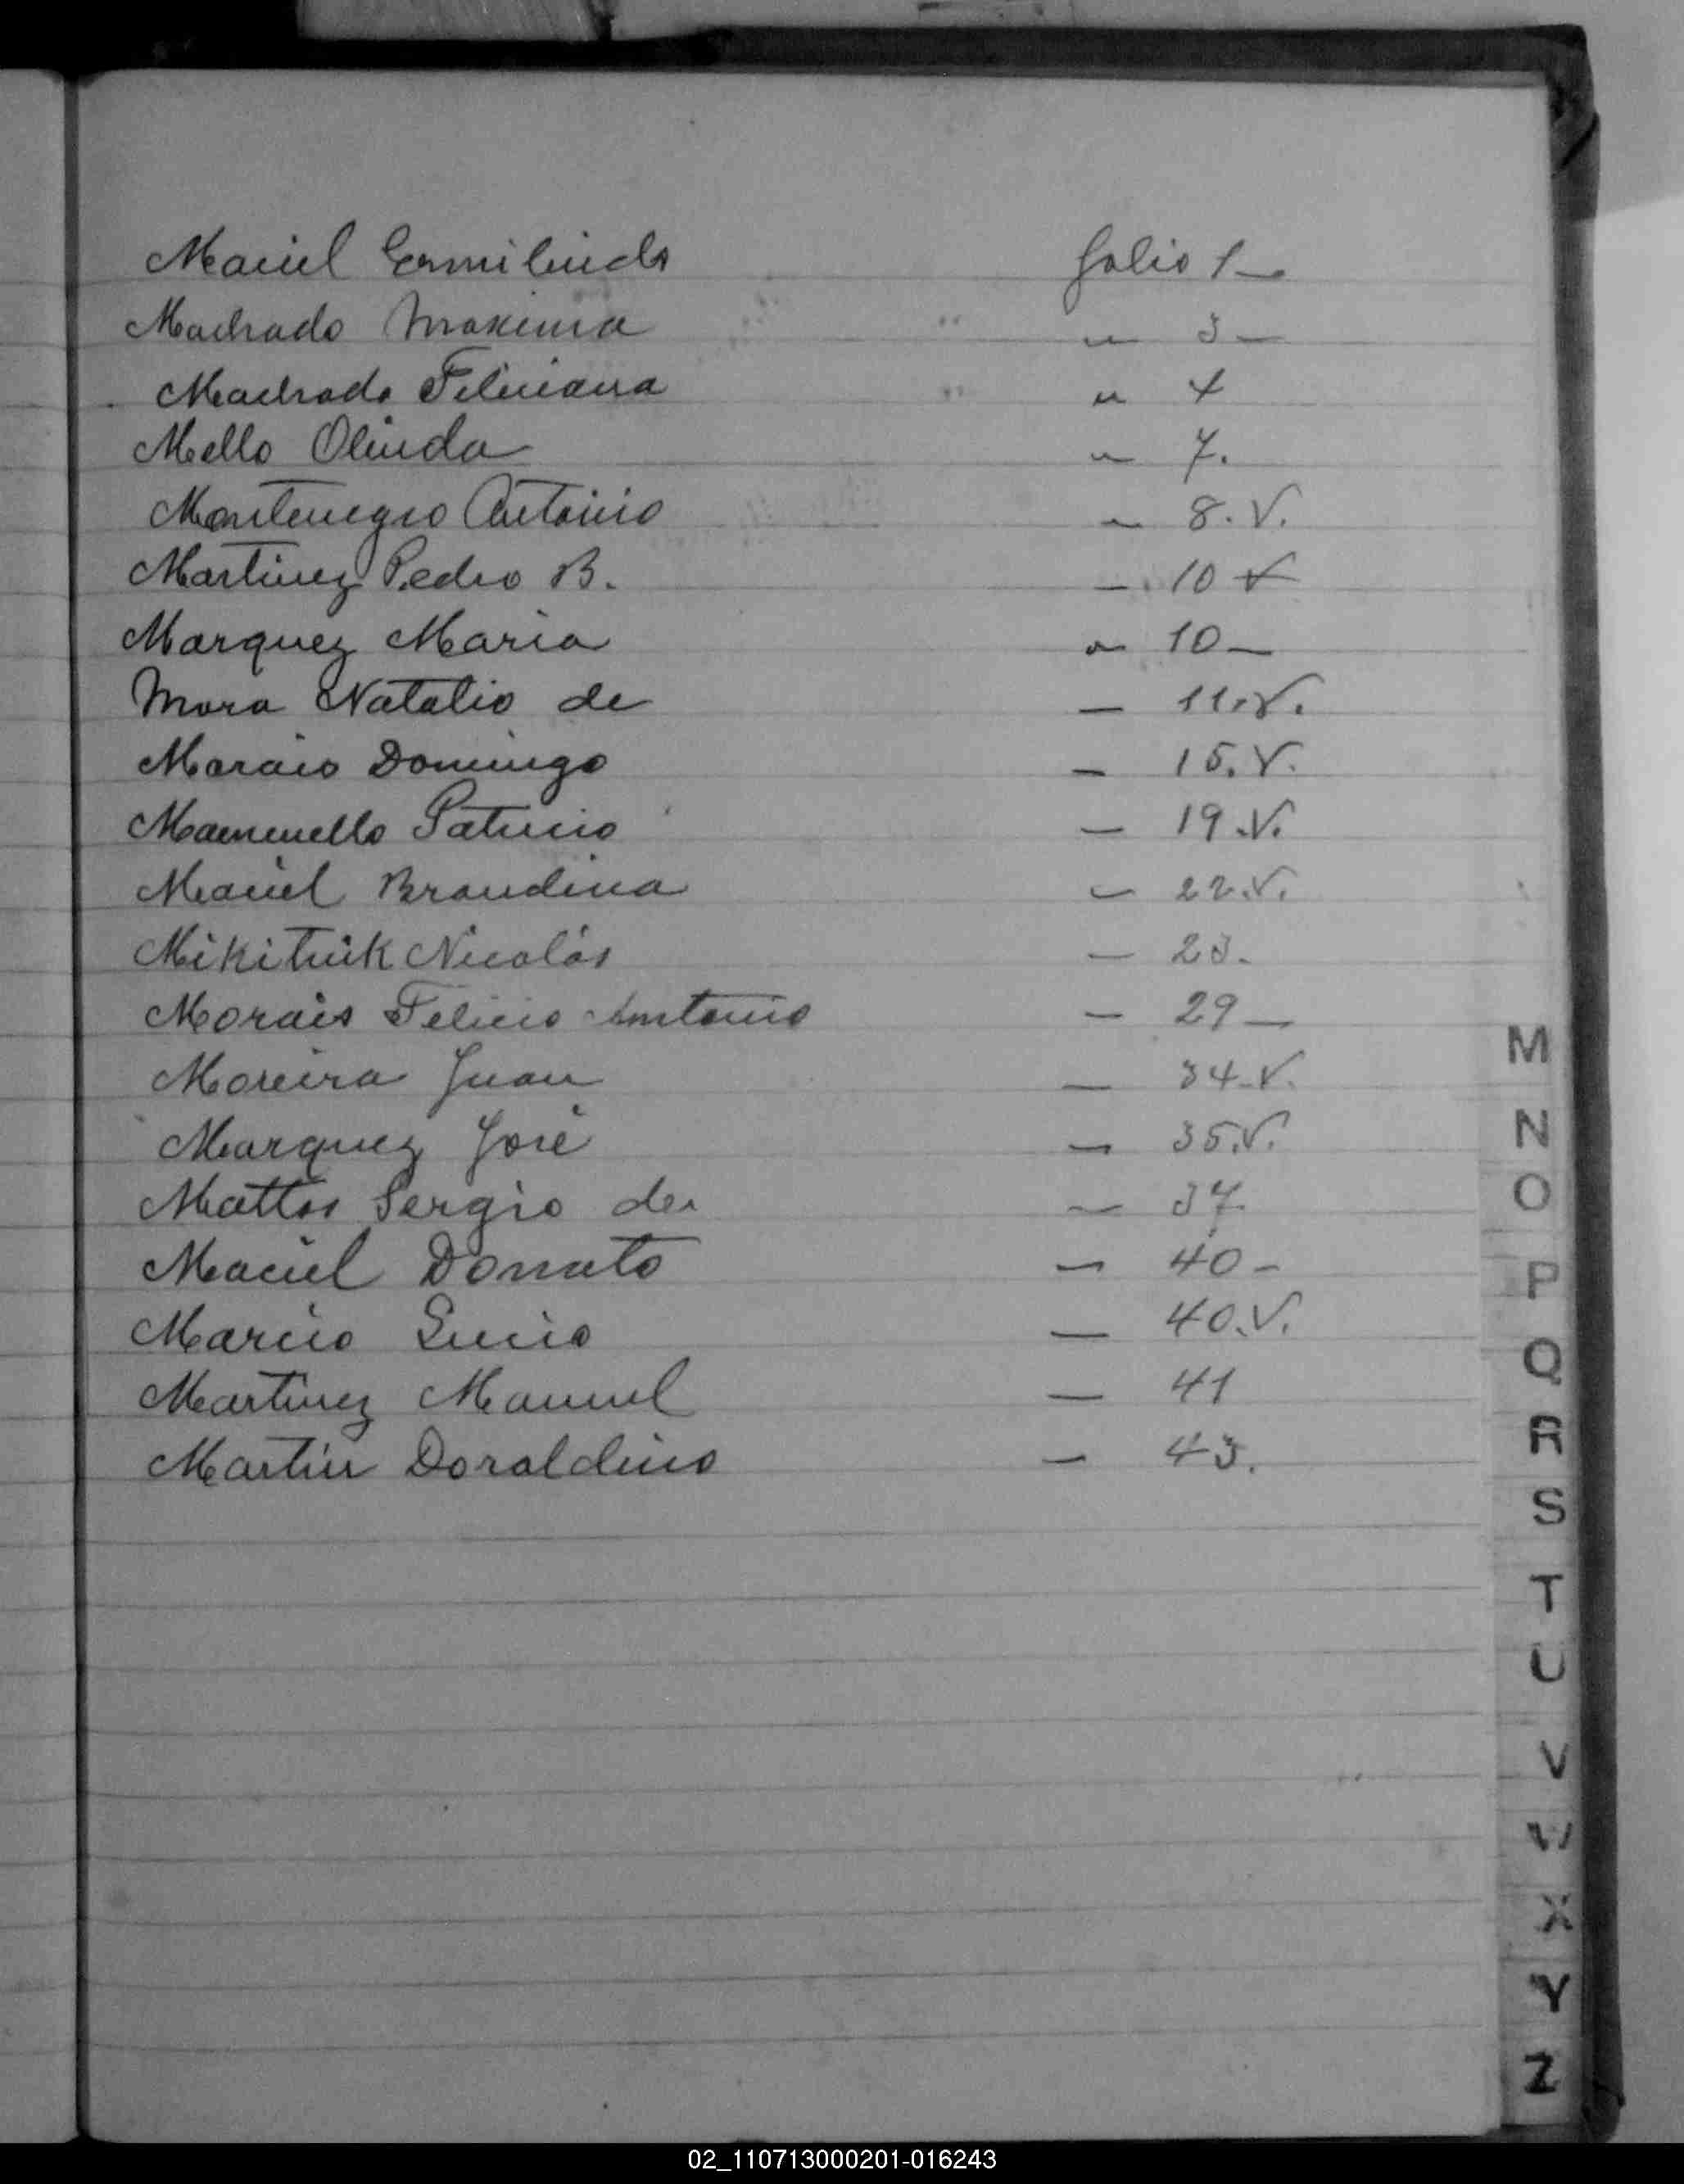 Maciel Ermilinda folio 1 —
Machado Maxima " 3 —
Machado Feliciana " 4
Mello Olinda " 7.
Montenegro Antonio " 8.V.
Martinez Pedro B. — 10 V
Marquez Maria " 10 —
Mora Natalio de — 11.V.
Morais Domingo — 15.V.
Saturnio — 19.V.
Maciel Brandina — 22.V.
Mikitiuk Nicolás — 23.
Morais Felicio Antonio — 29 —
Moreira Juan — 34.V.
Marquez José — 35.V.
Mattos Sergio de — 37.
Maciel Donato — 40 —
Lucio — 40.V.
Martinez Manuel — 41
Martin Doraldino — 43.
M
N
O
P
Q
R
S
T
U
V
W
X
Y
Z
02_110713000201-016243